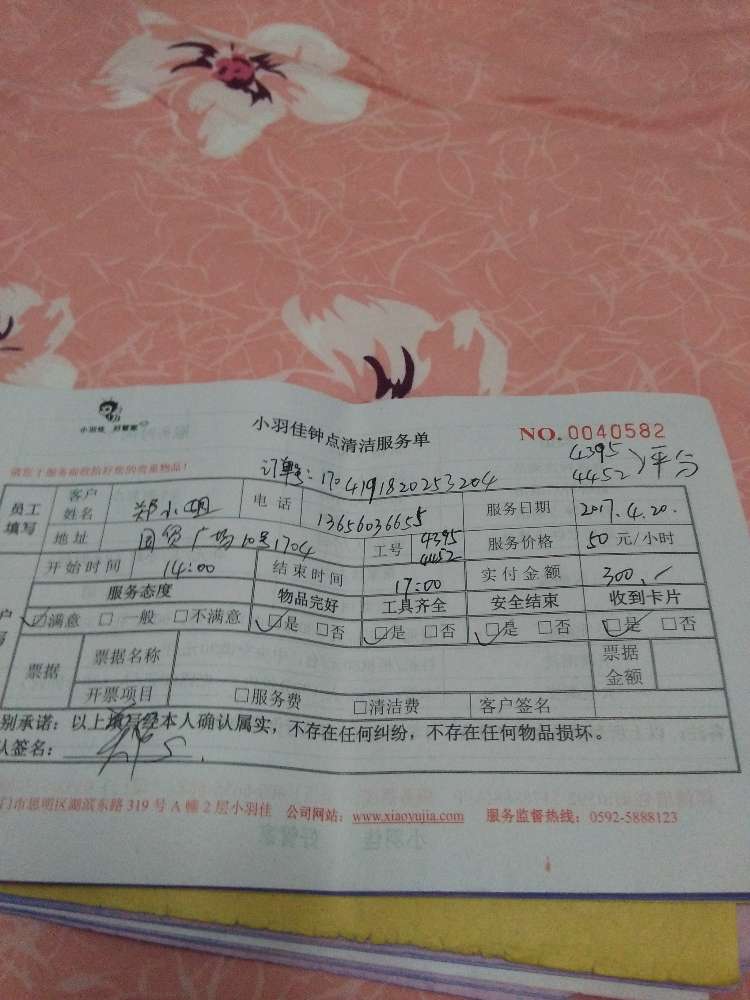 小羽佳 好管家
小羽佳钟点清洁服务单
NO. 0040582
订单号:170419182025 3204
4395
4452 平分
员工填写 客户姓名 郑小姐 电话 13656036655 服务日期 2017.4.20.
地址 国贸广场10号1704 工号 4395 4452 服务价格 50 元/小时
开始时间 14:00 结束时间 17:00 实付金额 300.
服务态度 物品完好 工具齐全 安全结束 收到卡片
☑满意 □一般 □不满意 ☑是 □否 ☑是 □否 ☑是 □否 ☑是 □否
票据 票据名称 票据金额
开票项目 □服务费 □清洁费 客户签名
别承诺:以上填写经本人确认属实,不存在任何纠纷,不存在任何物品损坏。
认签名:
门市思明区湖滨东路 319 号 A 幢 2 层小羽佳 公司网站:www.xiaoyujia.com 服务监督热线:0592-5888123